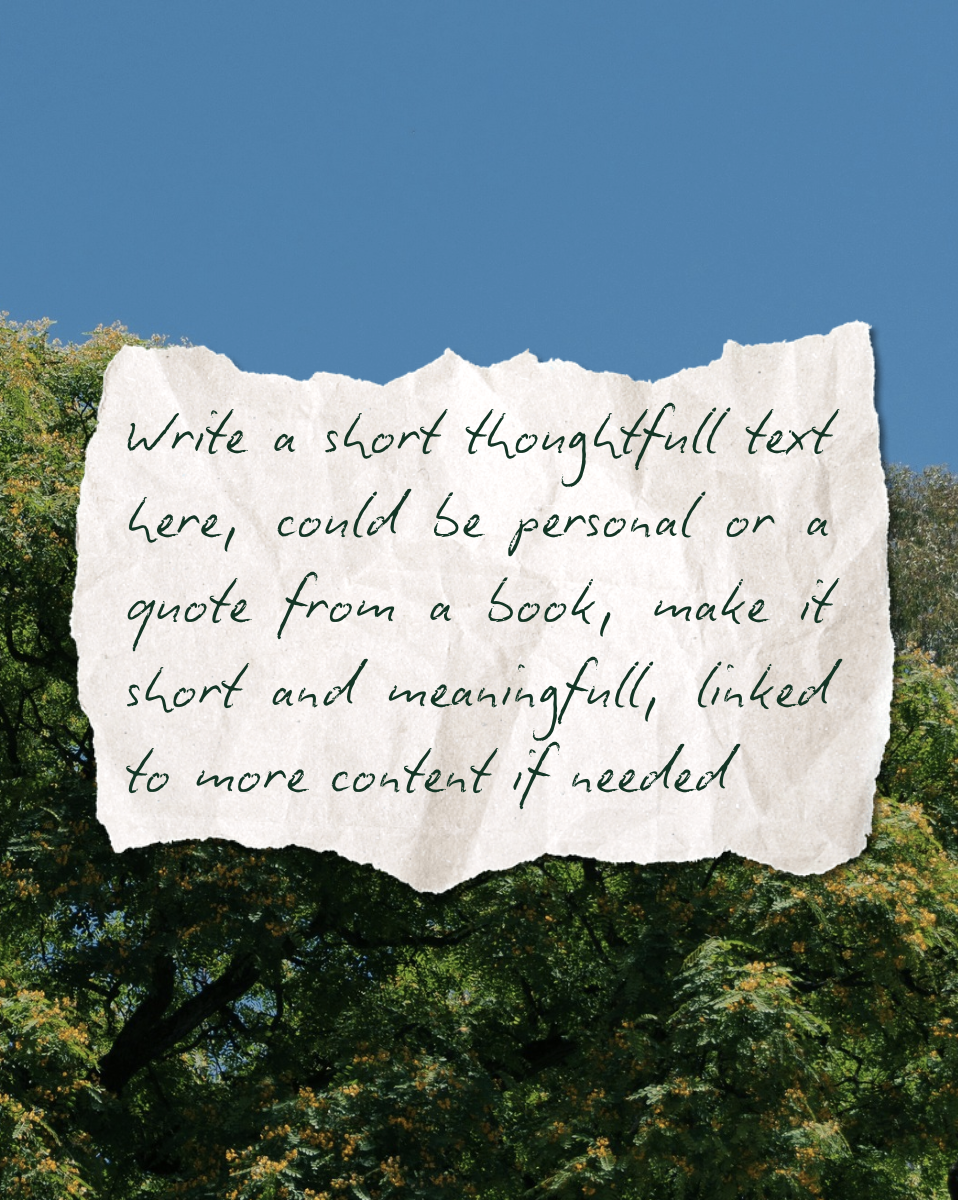 Write a short thoughtfull text
here, could be personal or a
quote from a book, make it
short and meaningfull, linked
to more content if needed